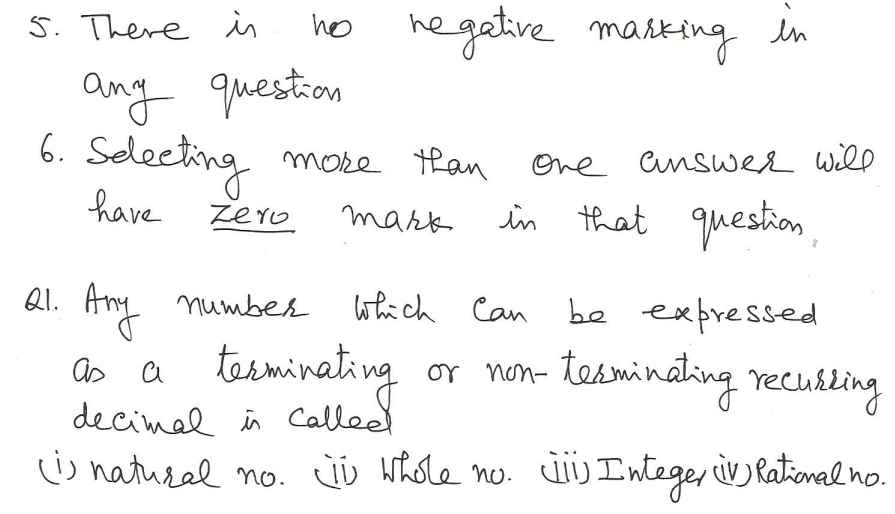 5. There is no negative marking in
any question
6. Selecting more than one answer will
have zero mark in that question
Q1. Any number which can be expressed
as a terminating or non-terminating recurring
decimal is called
(i) natural no. (ii) Whole no. (iii) Integer (iv) Rational no.